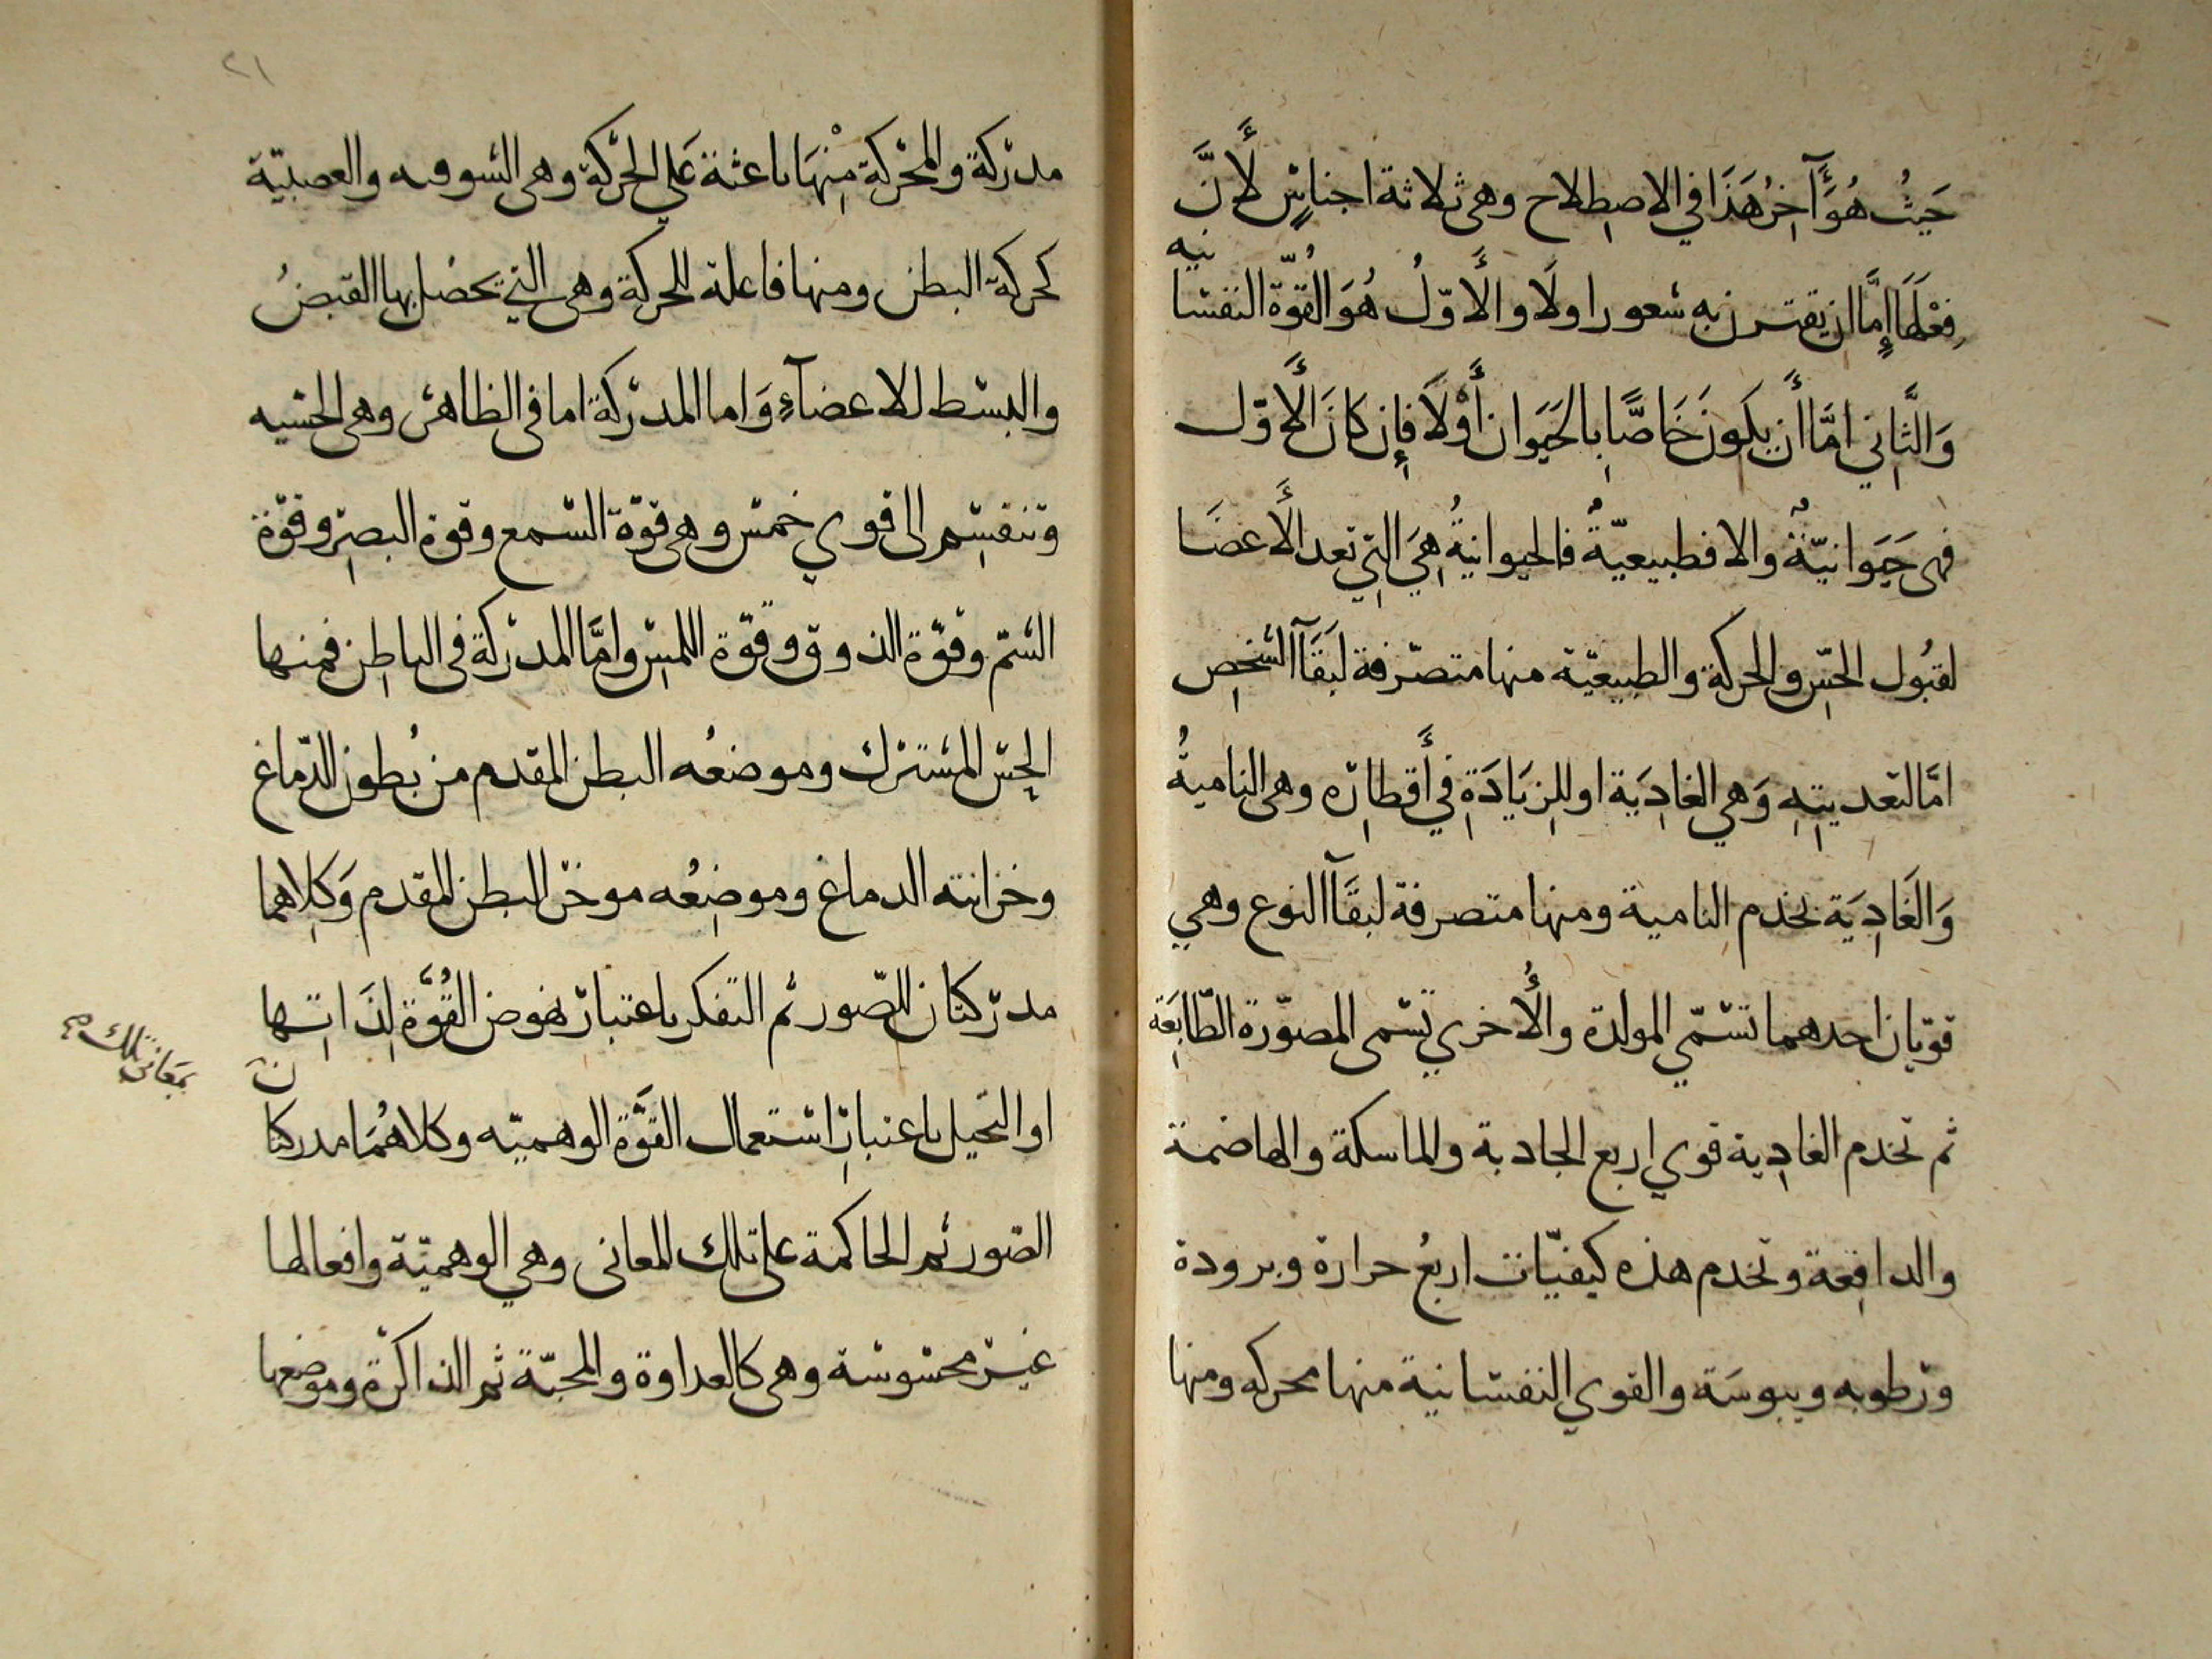 حَيثُ هُوَ آخِرُ هَذَا في الاصطلاح وهى ثلاثة اجناسٍ لأنَّ
فِعْلَهَا إمَّا ان يقترن به شعور اولَا والأوّلُ هُوَ القُوّة النفسا
نيه
وَالثَّانِي امَّا أن يكون خَاصًّا بِالحَيَوان أوْلَا فإِن كانَ الأوّل
فهى حَيَوانيّةٌ والا فطبيعيّةٌ فالحيوانيةُ هِيَ التِي تعد الأعضَا
لقبُول الحسِّ والحركة والطبيعيّة منها متصرّفة لبَقَآ الشخصِ
امَّا لتغديتِهِ وَهي الغادِيَة او للزِيَادَةِ فِي أَقطارِه وهى الناميةُ
وَالغَادِيَة تخدم النامية ومنها متصرفة لبقَآ النوع وهي
قوتان احدهما تسمّي المولدة والأُخري تسمى المصوّرة الطّابِعَة
ثم تخدم الغادِية قوي اربع الجادبة والماسكة والهاضمة
والدافِعة وتخدم هذه كيفيّات اربعُ حرارة وبرودة
ورطوبه ويبوسَة والقوي النفسانية منها محركه ومنها
٢١
مدركة والمحركة مِنْهَا باعثة عَلي الحَركة وهى الشوقيه والعصبيّة
كحركة البطن ومنها فاعلة للحركة وهى التي يحصُل بها القبضُ
والبسط للاعضآءِ وَاما المدركة اما فى الظاهر وهى الحسيه
وتنقسِم الى قوي خمس وهى قوّة السّمع وقوة البصرِ وقوّة
الشمّ وقوّة الذوق وقوّة اللمسِ وامَّا المدركة فى الباطِن فمنها
الحِسّ المشترك وموضعُه البطن المقدم من بُطون الدّماغ
وخزانته الدماغ وموضِعُه موخر البطن المقدم وَكِلاهما
مدركتان للصّور ثم التفكر باعتبار نهوض القُوَّة لِذَاتِها
او التخيل باعتبارِ استعمال القوَّة الوهميّه وكلاهُمَا مدركتا
ن
الصّور ثم الحاكمة على تلك المعانى وهي الوهميّة وافعالها
بمعَانى تلك
غير محسوسة وهى كالعداوة والمحبّة ثم الذاكرة وموضعها